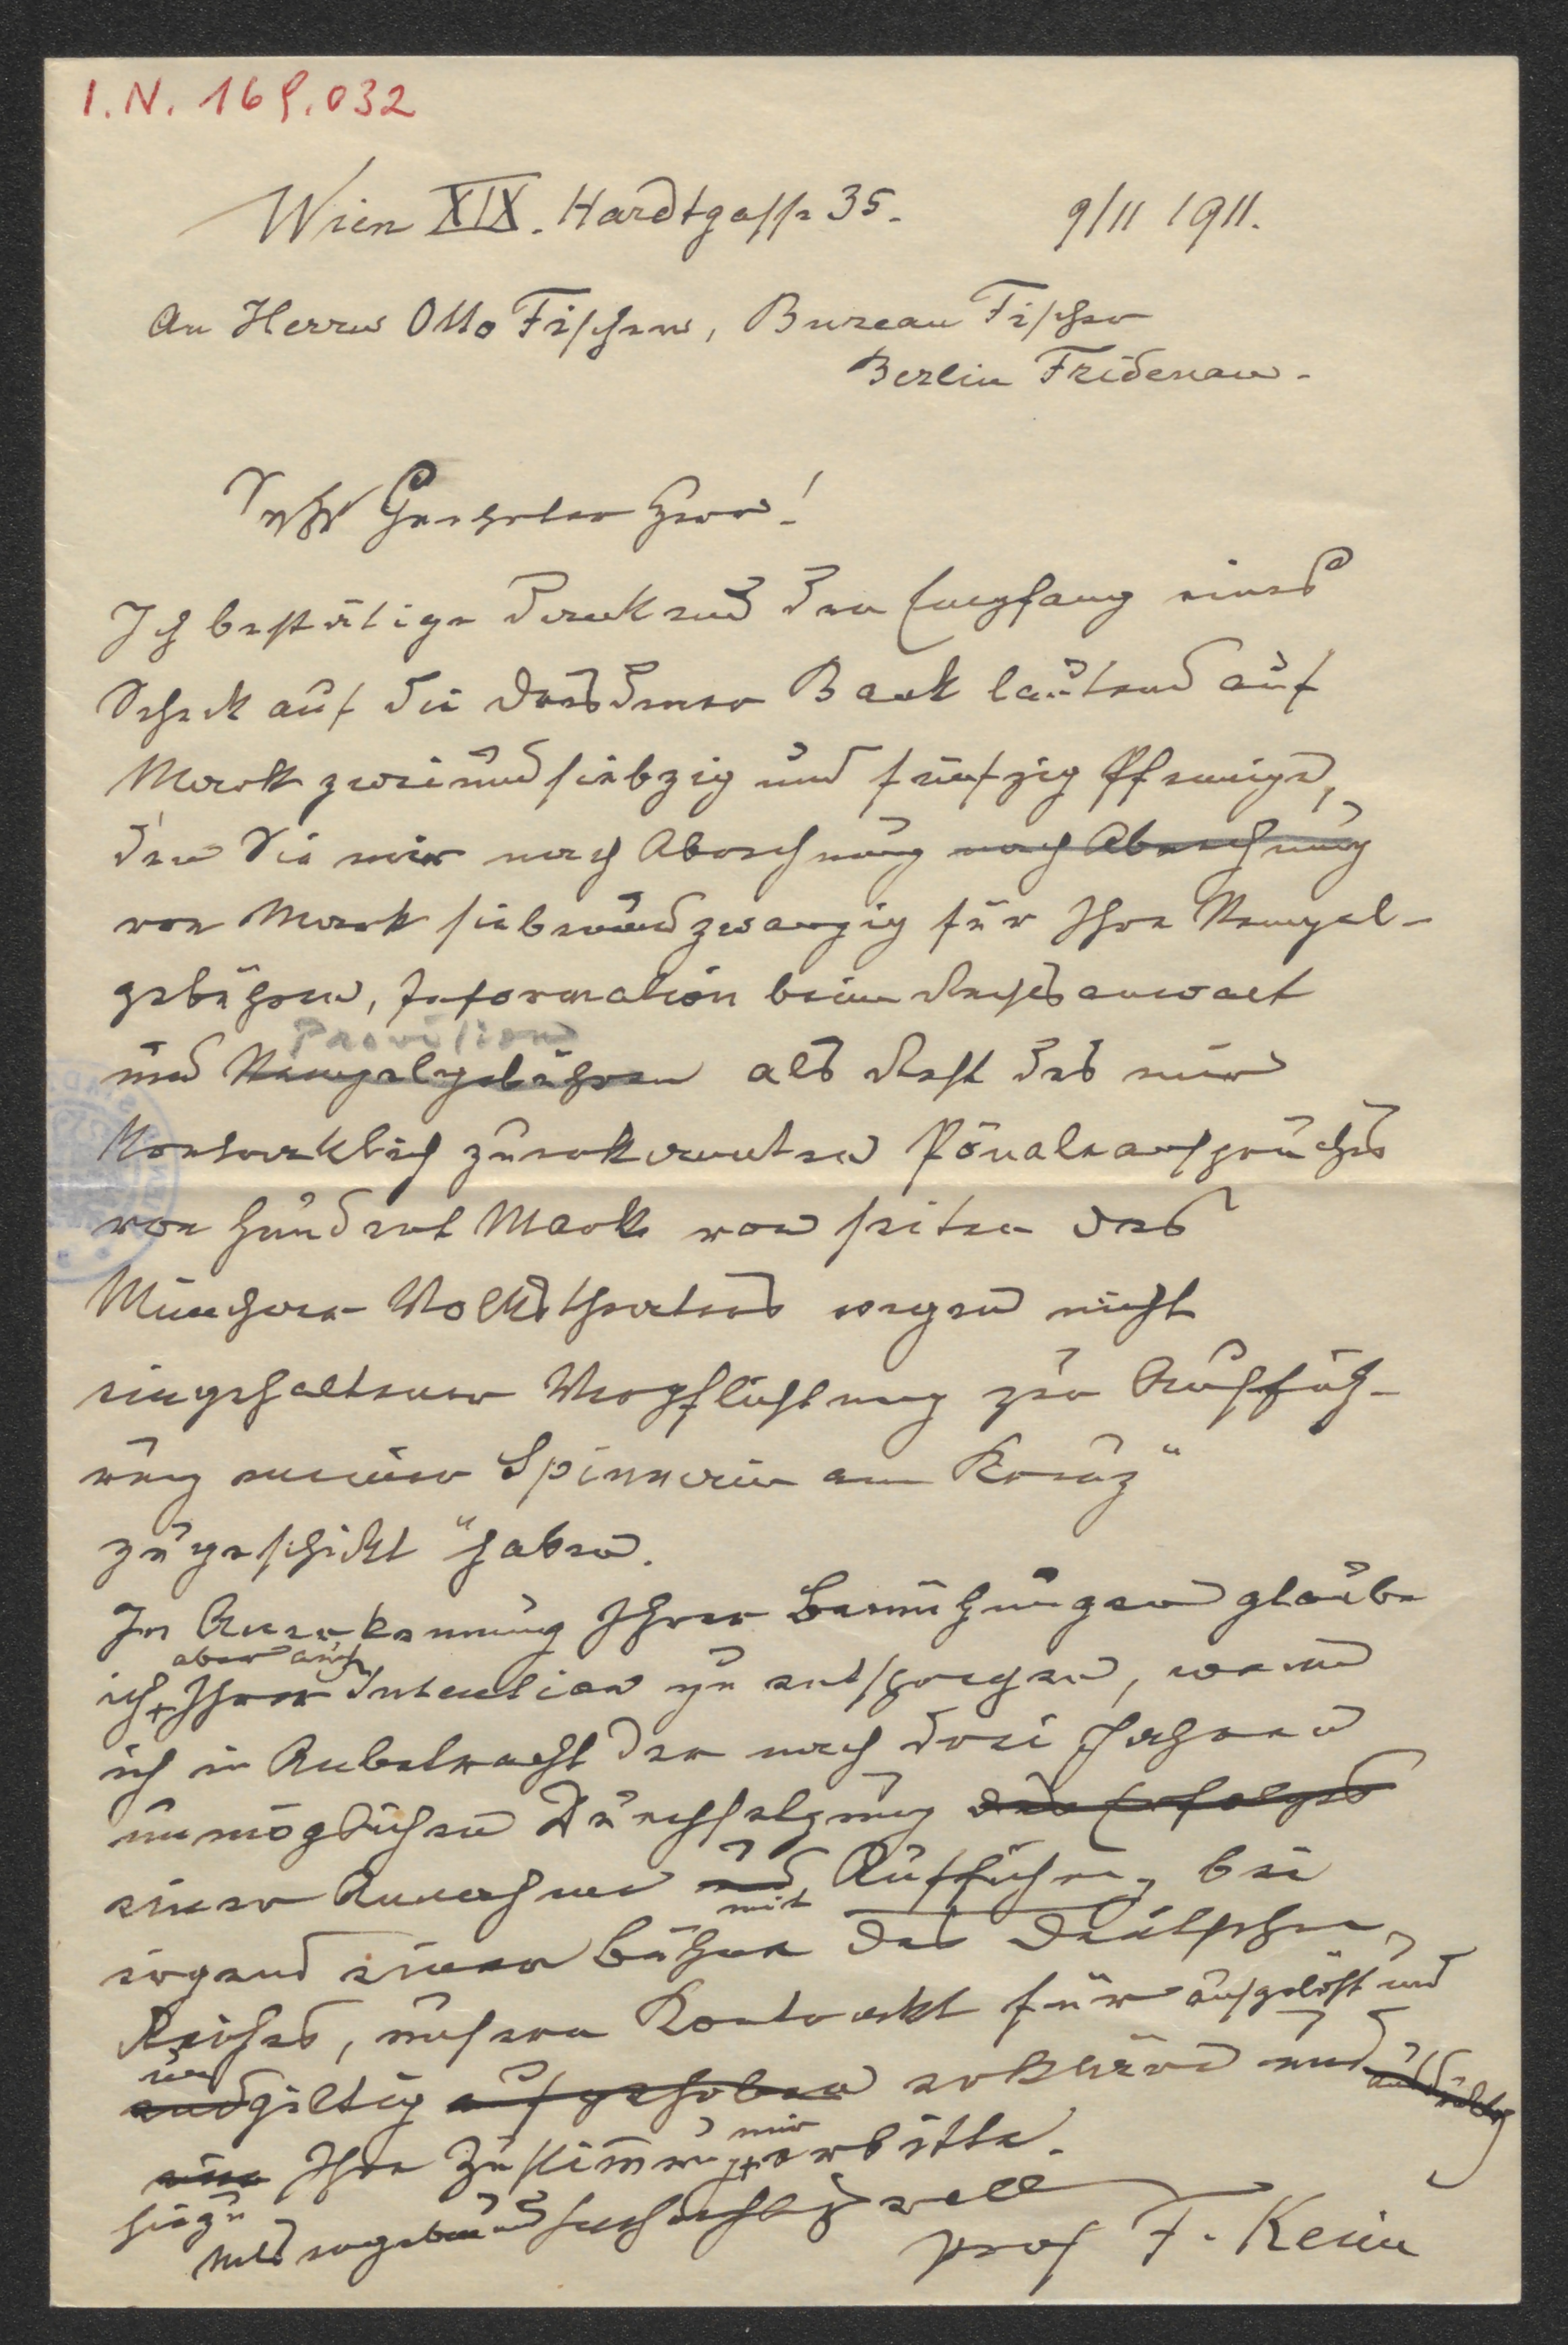 I.N. 169.032
Wien XIX. Hardtgasse 35. 9/11 1911.
An Herrn Otto Fischer, Bureau Fischer
Berlin Fridenau.
Sehr Geehrter Herr!
Ich bestätige dankend den Empfang eines
Scheck auf die Dresdener Bank lautend auf
Mark zweiundsiebzig und fünfzig Pfennige,
den Sie mir nach Abrechnung nach Abrechnung
von Mark siebenundzwanzig für Ihre Stempel-
gebühren, Information beim Rechtsanwalt
Provision
und Stempelgebühren als Rest des mir
kontraktlich zuerkannten Pönaleanspruches
von hundert Mark von seiten des
Münchner Volkstheaters wegen nicht
eingehaltener Verpflichtung zur Auffüh-
rung meiner Spinnerin am Kreuz"
zugeschickt "haben.
In Anerkennung Ihrer Bemühungen glaube
aber auch
ich Ihrer Intention zu entsprechen, wenn
ich in Anbetracht der nach drei Jahren
unmöglichen Durchsetzung des Erfolges
einer Annahme und Aufführung bei
mit
irgend einer Bühne des Deutschen
Reiches, unsern Kontrakt für aufgelöst und
un
endgiltig aufgehoben erkläre und
eine Ihre Zustimmung erbitte.
mir
hiezu
hochachtungsvoll
Prof F. Keim